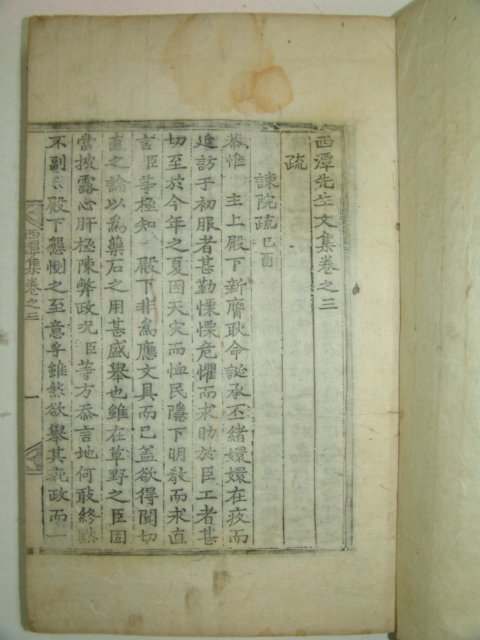 西潭先生文集卷之三
疏
諫院疏己酉
恭惟 主上殿下新膺耿命誕承丕緒嬛嬛在疚而
追訪于初服者甚勤慄慄危懼而求助於臣工者甚
切至於今年之夏因天灾而恤民隱下明敎而求直
言臣等極知 殿下非爲應文具而已盖欲得聞切
直之論以爲藥石之用甚盛擧也雖在草野之臣固
當披露心肝極陳弊政况臣等方忝言地何敢終默
不副 殿下懇惻之至意乎雖然欲擧其疵政而一
西潭集卷之三 一